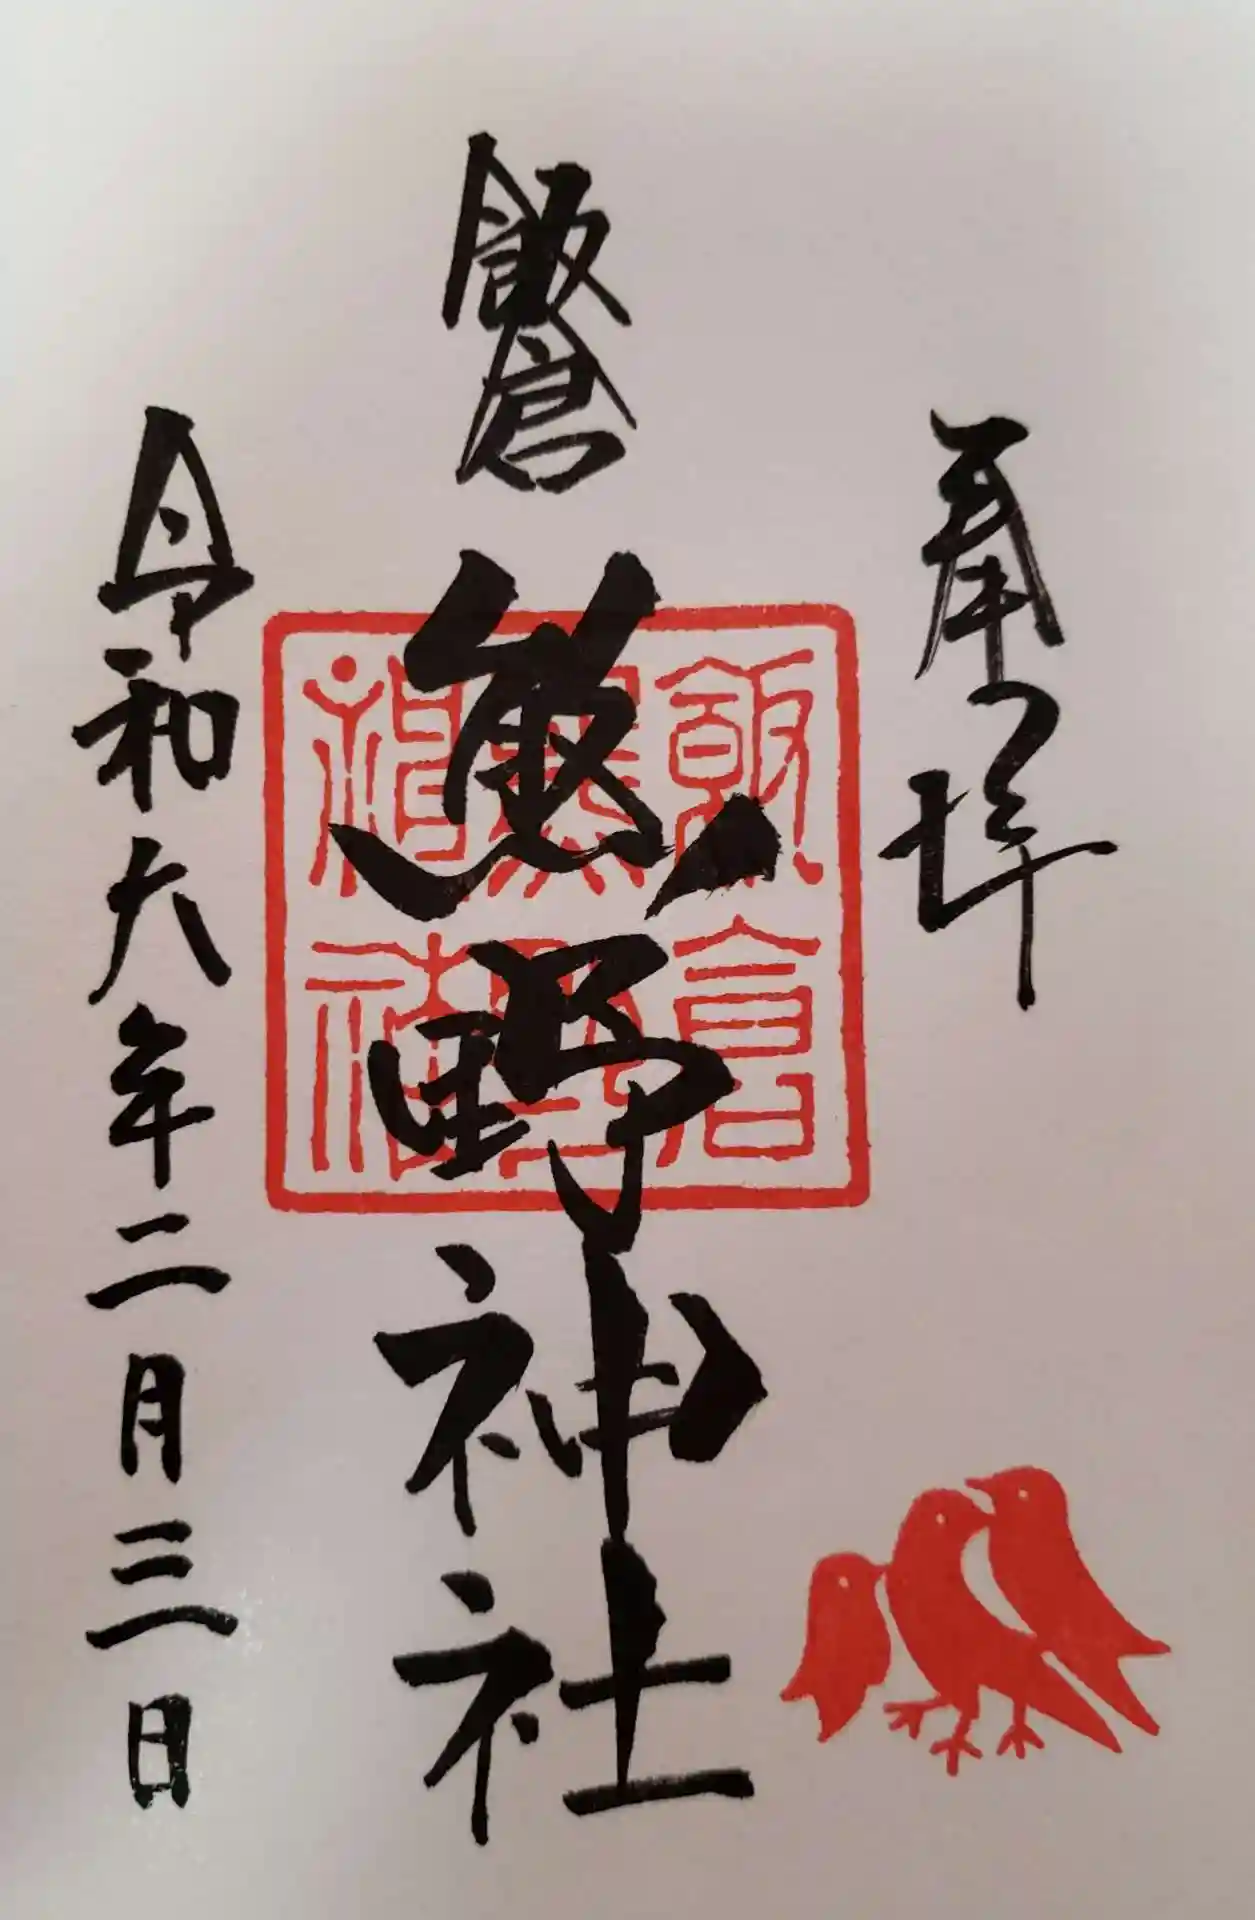 奉拝
飯倉
熊野神社
飯倉
熊野
神社
令和六年二月三日